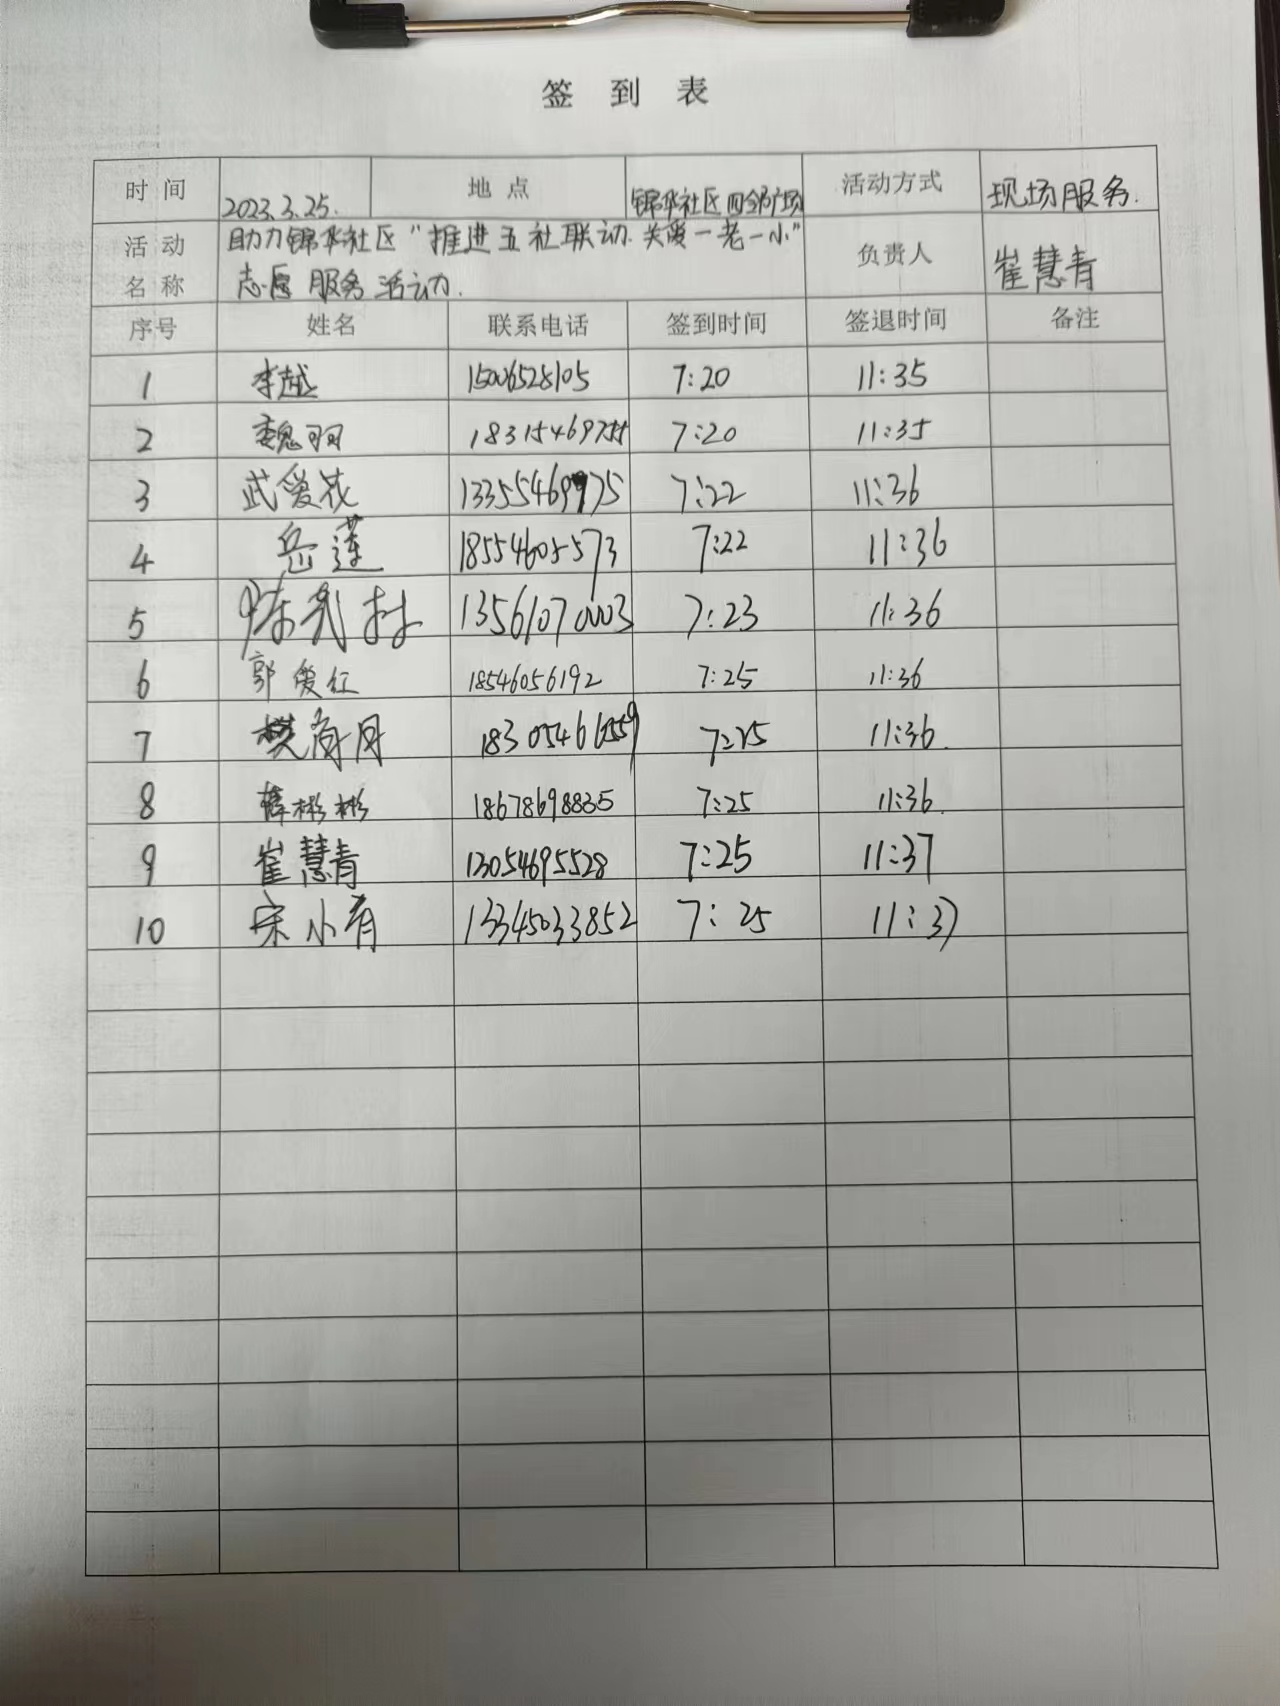 签到表
时间 2023.3.25. 地点 锦华社区四邻广场 活动方式 现场服务.
活动名称 助力锦华社区"推进五社联动.关爱一老一小" 负责人 崔慧青
志愿服务活动.
序号 姓名 联系电话 签到时间 签退时间 备注
1 李越 15006528105 7:20 11:35
2 魏羽 18315469755 7:20 11:35
3 武爱花 13355469975 7:22 11:36
4 岳莲 18554605573 7:22 11:36
5 陈 村 13561070003 7:23 11:36
6 郭爱红 18546056192 7:25 11:36
7 樊 月 7:25 11:36.
8 薛彬彬 18678698835 7:25 11:36
9 崔慧青 13054695528 7:25 11:37
10 宋小有 13345033852 7:25 11:37